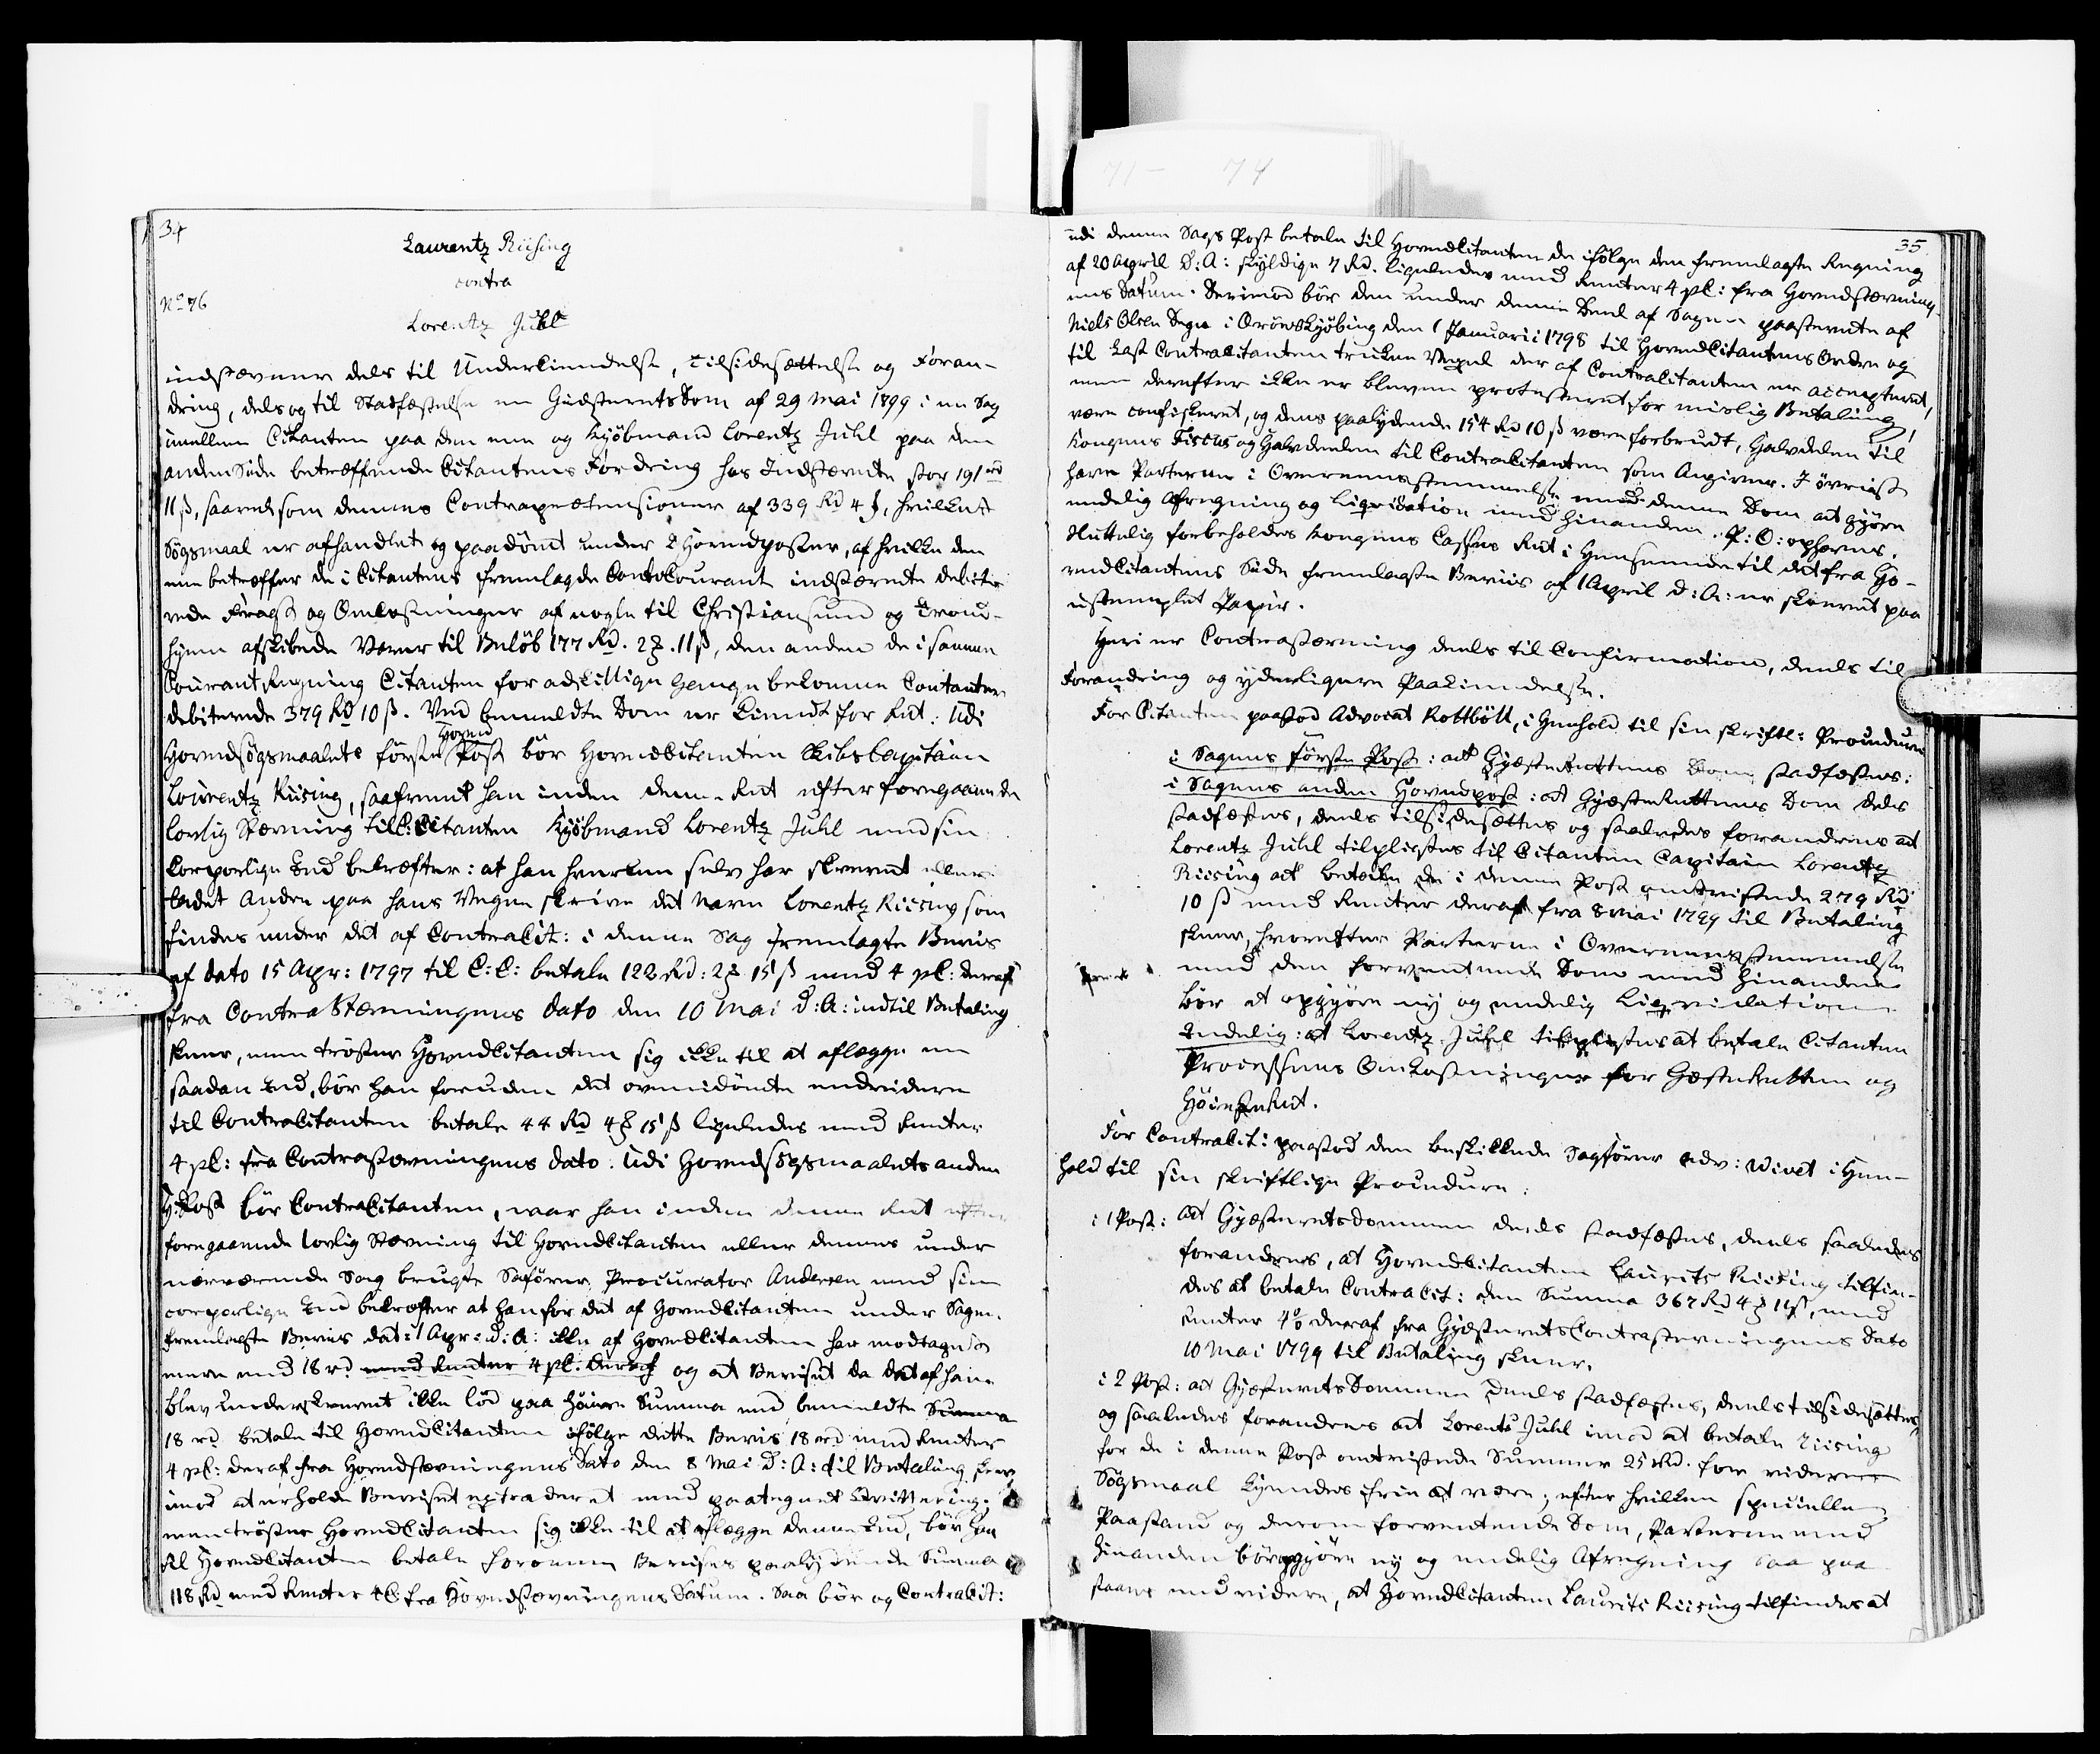 34
Laurentz Riising
contra
No 76
Lorentz Juhl
indstævner dels til Underkiendelse, Tilsidesættelse og Foran-
dring, dels og til Stadfæstelse en GiæsteretsDom af 29 Mai 1799 i en Sag
imellem Citanten paa den ene og Kjøbmand Lorentz Juhl paa den
anden Side betræffende Citantens Fordring hos Indstævnte stor 191 rd
11 ß, saavelsom dennes Contraprætensioner af 339 Rd 4 ß, hvilket
Søgsmaal er afhandlet og paadømt under 2 Hovedposter, af hvilke den
ene betræffer de i Citantens fremlagde ContoCourant indstævnte debite-
rede Fragt og Omkostninger af nogle til Christiansund og Trond-
hjem afskibede Varer til Beløb 177 Rd. 2 ℳ. 11 ß, den anden de i samme
Courant Regning Citanten for adskillige Gange bekomne Contanter
debiterede 379 Rd 10 ß. Ved bemeldte Dom er kiendt for Ret: Udi
Hovedsøgsmaalets første Hoved Post bør Hovedcitanten Skibscapitain
Lourentz Riising, saafremt han inden denne Ret efter foregaaende
lovlig Stævning til C:Citanten Kjøbmand Lorentz Juhl med sin
Corporlige Eed bekræfter: at han hverken selv har skrevet eller
ladet Andre paa hans Vegne skrive det Navn Lorentz Riising som
findes under det af Contracit: i denne Sag fremlagte Beviis
af dato 15 Apr: 1797 til C:C: betale 122 Rd: 2 ℳ 15 ß med 4 pC: deraf
fra ContraStævningens dato den 10 Mai d: A: indtil Betaling
skeer, men trøster Hovedcitanten sig ikke til at aflægge en
saadan Eed, bør han foruden det ovenidømte endvidere
til Contracitanten betale 44 Rd 4 ℳ 15 ß ligeledes med Renter
4 pC: fra Contrastævningens dato: Udi Hovedsøgsmaalets anden
H:Post bør ContraCitanten, naar han inden denne Ret efter
foregaaende lovlig Stævning til Hovedcitanten eller dennes under
nærværende Sag brugte Sagfører Procurator Andersen med sin
corporlige Eed bekræfter at han for det af Hovedcitanten under Sagen
fremlagte Beviis dat: 1 Apr: d: A: ikke af Hovedcitanten har modtaget
mere end 18 rd med Renter 4 pC. deraf og at Beviset da det af ham
blev underskrevet ikke lød paa høiere Summa end bemeldte Summa
18 rd betale til Hovedcitanten ifølge dette Beviis 18 rd med Renter
4 pC: deraf fra Hovedstævningens Dato den 8 Mai d: A: til Betaling skeer
imod at erholde Beviset extraderet med paategnet Qvittering:
men trøster Hovedcitanten sig ikke til at aflægge denne Eed, bør han
til Hovedcitanten betale forommeldte Bevises paalydende Summa
118 Rd med Renter 4 C fra Hovedstævningens Datum. Saa bør og Contracit:
35
udi denne Sags Post betale til Hovedcitanten de ifølge den fremlagte Regning
af 20 April d: A: skyldige 7 Rd. ligeledes med Renter 4 pC: fra Hovedstævning-
ens Datum. Derimod bør den under denne Deel af Sagen paastævnte af
Niels Olsen i Ærøeskjøbing den 1 Januarii 1798 til Hovedcitantens Ordre og
til Last Contracitanten trukne Vexel der af Contracitanten er accepteret,
men derefter ikke er bleven protesteret for mislig Betaling,
være confiskeret, og dens paalydende 154 Rd 10 ß være forbrudt, halvdelen til
Kongens Fiscus og Halvdeelen til Contracitanten som Angiver. I øvrigt
have Parterne i Overeensstemmelse med denne Dom at gjøre
endelig Afregning og liqvidation med hinanden. P: O: ophæves.
Nuttelig forbeholdes Kongens Casses Ret i Henseende til det fra Ho-
vedcitantens Side fremlagte Beviis af 1 April d: A: er skrevet paa
ustemplet Papir.
Heri er Contrastævning deels til Confirmation, deels til
Forandring og yderligere Paakiendelse.
For Citanten paastod Advocat Rottbøll, i Henhold til sin skriftl: Procedure
i Sagens første Post: at GjæsteRettens Dom stadfæstes:
i Sagens anden Hovedpost: at GjæsteRettens Dom dels
stadfæstes, deels tilsidesættes og saaledes forandres at
Lorentz Juhl tilpligtes til Citanten Capitain Lorentz
Riising at betale de i denne Post omtvistende 279 Rd
10 ß med Renter deraf fra 8 Mai 1799 til Betaling
skeer, hvorefter Parterne i Overeensstemmelse
med den forventende Dom med hinanden
bør at opgjøre ny og endelig Liqvidation
Endelig: at Lorentz Juhl tilpligtes at betale Citanten
Processens Omkostninger for Gæsteretten og
HøiesteRet.
For Contracit: paastod den beskikkede Sagfører Adv: Wivet i Hen-
hold til sin skriftlige Procedure:
i 1 Post: at Gjæsteretsdommen deels stadfæstes, deels saaledes
forandres, at Hovedcitanten Laurits Riising tilfin-
des at betale Contracit: den Summa 367 Rd 4 ℳ 11 ß, med
renter 4% deraf fra GjæsteretsContrastævningens Dato
10 Mai 1799 til Betaling skeer.
i 2 Post: at GjæsteretsDommen deels stadfæstes, deels tilsidesættes
og saaledes forandres at Lorents Juhl imod at betale Riising
for de i denne Post omtvistede Summer 25 Rd. for videre
Søgsmaal kjendes frie at være; efter hvilken specielle
Paastand og derom forventende Dom, Parterne med
hinanden bør opgjøre ny og endelig Afregning Saa paa
staaes endvidere, at Hovedcitanten Laurits Riising tilfindes at